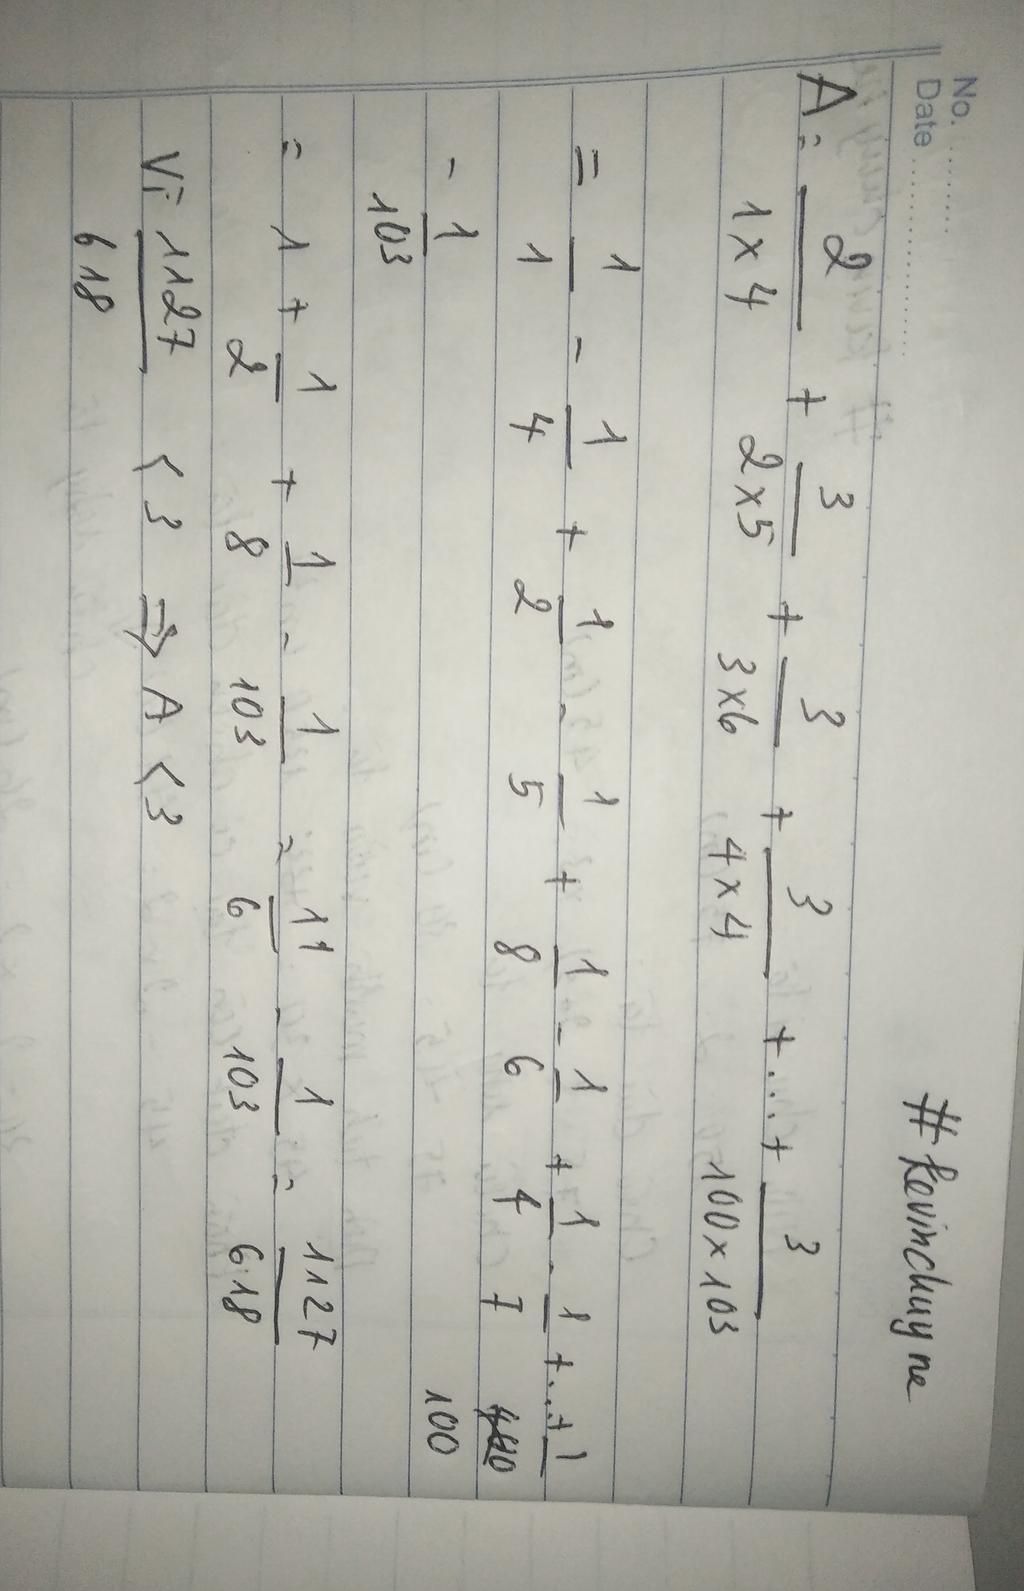 No.
Date
#Kevinchuy ne
A = 2/1x4 + 3/2x5 + 3/3x6 + 3/4x4 + ... + 3/100x103
= 1/1 - 1/4 + 1/2 - 1/5 + 1/8 - 1/6 + 1/4 - 1/7 + ... + 1/100
- 1/103
= 1 + 1/2 + 1/8 - 1/103 = 11/6 - 1/103 = 1127/618
Vì 1127/618 < 3 => A < 3